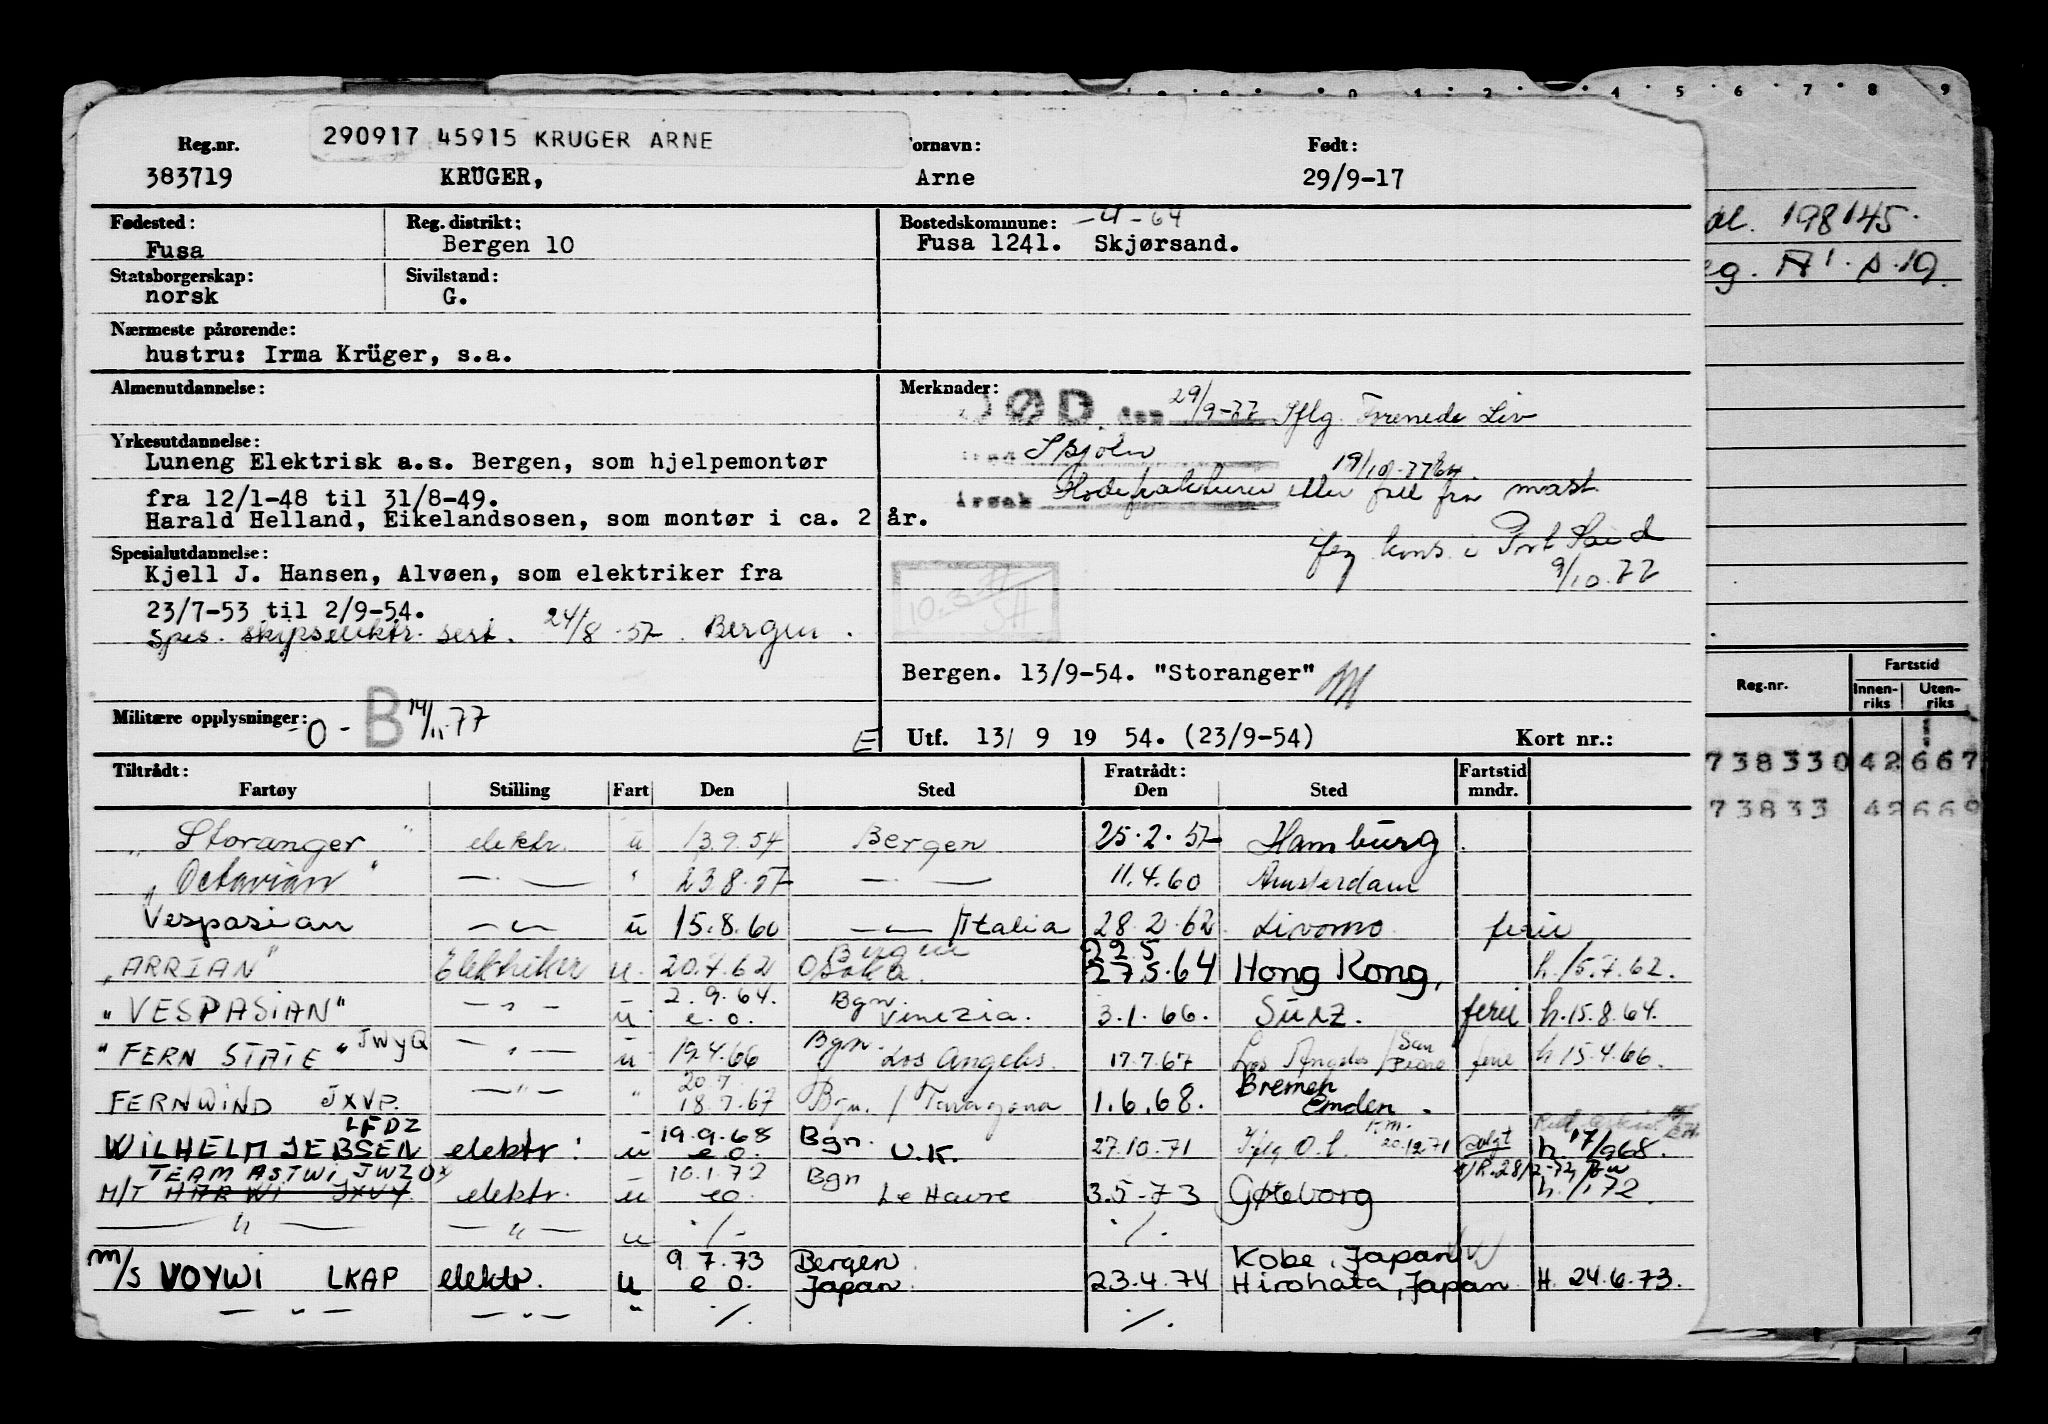 0 1 2 4 5 6 7 8 9
290917 45915 KRUGER ARNE
Reg.nr. ornavn: Født:
383719 KRÜGER, Arne 29/9-17
Fødested: Reg. distrikt: Bostedskommune: -4-64
Fusa Bergen 10 Fusa 1241. Skjørsand.
Statsborgerskap: Sivilstand:
norsk G.
Nærmeste pårørende:
hustru: Irma Krüger, s.a.
Almenutdannelse:
Yrkesutdannelse:
Luneng Elektrisk a.s. Bergen, som hjelpemontør
fra 12/1-48 til 31/8-49.
Harald Helland, Eikelandsosen, som montør i ca. 2 år.
Spesialutdannelse:
Kjell J. Hansen, Alvøen, som elektriker fra
23/7-53 til 2/9-54.
Spes. skipselektr. sert. 24/8-57. Bergen.
Militære opplysninger: -0- B 14/11-77
Merknader:
DØD den 29/9-77 Iflg. Forenede Liv
19/10-77
eller fall fra mast
kons. i Port Said
9/10.77
Bergen. 13/9-54. "Storanger"
E Utf. 13/ 9 19 54. (23/9-54) Kort nr.:
198145.
Reg.nr. Fartstid
Innen-riks Uten-riks
738330 42 667
73833 42 669
Tiltrådt: Fratrådt: Fartstid
Fartøy Stilling Fart Den Sted Den Sted mndr.
"Storanger" elektr. u 13.9.54 Bergen 25.2.57 Hamburg.
"Octavian" — " — " 23.8.57 — " — 11.4.60 Amsterdam
Vespasian — " — u 15.8.60 — " — /Italia 28.2.62 Livorno ferie
"ARRIAN" Elektriker u. 20.7.62 Bergen Osaka. 22.5 27.5.64 Hong Kong, h. 15.7.62.
"VESPASIAN" — " — u 2.9.64. e.o. Bgn. Venezia. 3.1.66. Suez. ferie h.15.8.64.
"FERN STATE" JWYQ — " — u 19.4.66 Bgn. Los Angeles. 17.7.67 Los Angeles / San Pedro ferie h 15.4.66.
FERNWIND JXVP. — " — " 20.7 18.7.67 Bgn. / Taragona 1.6.68. Bremen Emden.
WILHELM JEBSEN LFDZ elektr. u 19.9.68 e.o. Bgn. U.K. 27.10.71 Iflg. O.l. 20.12.71 h. 17/968.
TEAM ASTWI JWZO
M/T HARWI JXVY elektr. u 10.1.72 eo Bgn Le Havre 3.5-73 Gøteborg h. /172.
— " — — " — u ./- ./.
m/s VOYWI LKAP elektr. u 9.7.73 e o. Bergen Japan. 23.4.74 Kobe, Japan Hirohata, Japan H. 24.6.73.
— " — — " — " ./. ./.